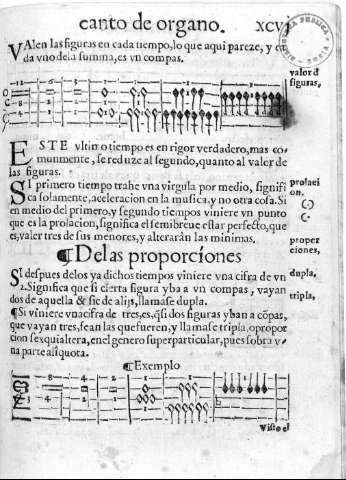 canto de organo. XCV
VAlen las figuras en cada tiempo, lo que aqui pareze, y ca
da vno dela summa, es vn compas.
valor d
figuras,
ESTE vltimo tiempo es en rigor verdadero, mas co-
munmente, se reduze al segundo, quanto al valor de
las figuras.
SI primero tiempo trahe vna virgula por medio, signifi
ca solamente, aceleracion en la musica, y no otra cosa. Si
en medio del primero, y segundo tiempos viniere vn punto
que es la prolacion, significa el semibreue estar perfecto, que
es, valer tres de sus menores, y alterarân las minimas.
prolaci
on.
¶ De las proporciones
proper
ciones,
SI despues delos ya dichos tiempos viniere vna cifra de vn
2. Significa que si cierta figura yba a vn compas, vayan
dos de aquella & sic de alijs, llamase dupla.
dupla,
¶ Si viniere vna cifra de tres, es, q̃ si dos figuras yban a cõpas,
que vayan tres, sean las que fueren, y llamase tripla, o propor
cion sexquialtera, enel genero superparticular, pues sobra v
na parte aliquota.
tripla,
¶ Exemplo
Visto el